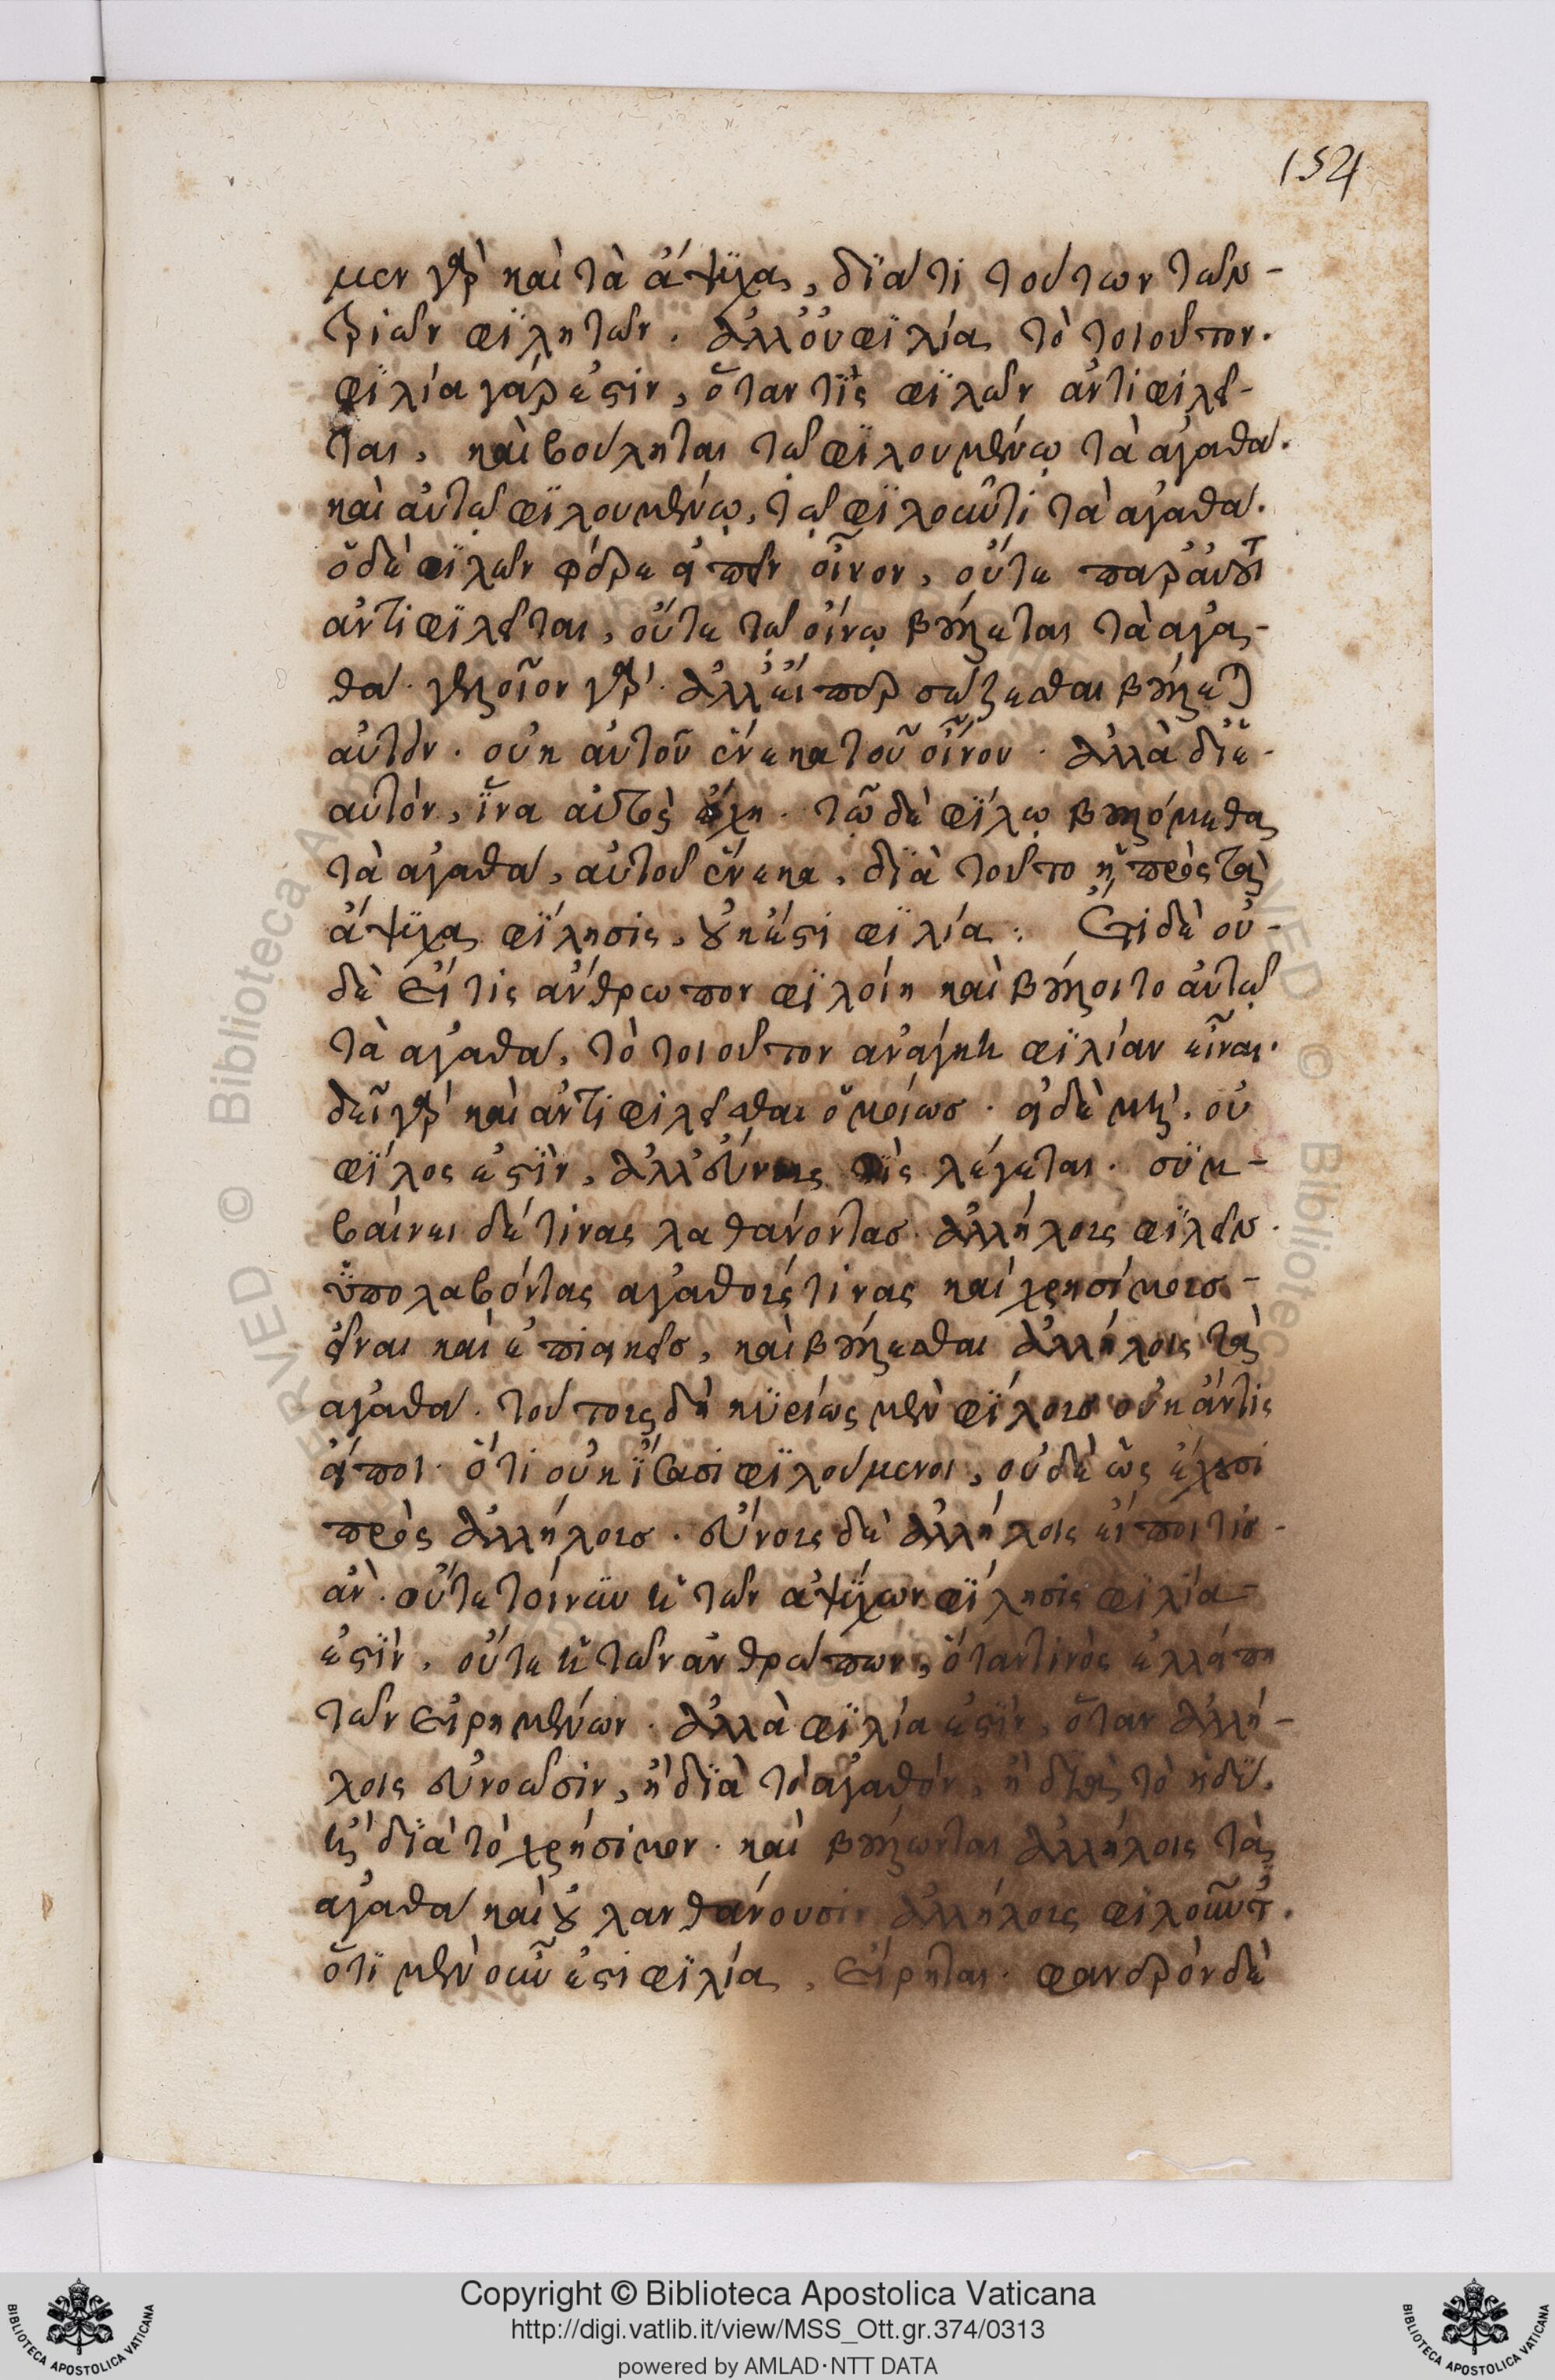 154
μεν γὰρ καὶ τὰ ἄψϋχα, δϊά τι τούτων τῶν
τριῶν φϊλητῶν. ἀλλ' οὐ φϊλία τὸ τοιοῦτον.
φϊλία γάρ ἐστιν, ὅταν τὶς φϊλῶν ἀντιφιλεῖ-
ται, καὶ βούληται τῶ φϊλουμένω τὰ ἀγαθά.
καὶ αὐτῶ φϊλουμένω, τῶ φϊλοῦντι τὰ ἀγαθά.
ὁ δὲ φϊλῶν φέρε εἰπεῖν οἶνον, οὔτε παρ' αὐτοῦ
ἀντιφϊλεῖται, οὔτε τῶ οἴνω βούλεται τὰ ἀγα-
θά. γελοῖον γάρ. ἀλλ' εἴπερ σώζεσθαι βούλεται
αὐτόν. οὐκ αὐτοῦ ἕνεκα τοῦ οἴνου. ἀλλὰ δϊ' ἑ-
αυτόν, ἵνα αὐτὸς ἔχη. τῶ δὲ φϊλω βουλόμεθα
τὰ ἀγαθά, αὐτοῦ ἕνεκα, δϊὰ τοῦτο ἡ πρὸς τὰ
ἄψϋχα φϊλησις, οὐκ ἔστι φϊλία: Ἔτι δὲ οὐ-
δὲ εἴ τις ἄνθρωπον φϊλοίη καὶ βούλοιτο αὐτῶ
τὰ ἀγαθά, τὸ τοιοῦτον ἀνάγκη φϊλίαν εἶναι.
δεῖ γὰρ καὶ ἀντιφιλεῖσθαι ὁμοίωσ. εἰ δὲ μὴ, οὐ
φϊλος ἐστὶν, ἀλλ' εὔνους τὶς λέγεται. συμ-
βαίνει δέ τινας λαθάνοντασ ἀλλήλους φϊλεῖν.
ὑπολαβόντας ἀγαθούς τινας καὶ χρησίμουσ
εἶναι καὶ ἐπιεικεῖσ, καὶ βούλεσθαι ἀλλήλοις τὰ
ἀγαθά. τούτους δὴ κϋρίως μὲν φϊλουσ οὐκ ἄν τις
εἴποι. ὅτι οὐκ ἴσασι φϊλούμενοι, οὐδὲ ὣς ἔχουσι
πρὸς ἀλλήλουσ. εὔνους δὲ ἀλλήλοις εἴποι τισ
ἄν. οὔτε τοίνϋν ἡ τῶν ἀψϋχων φϊλησις φϊλία
ἐστὶν, οὔτε ἡ τῶν ἀνθρώπων, ὅταν τινὸς ἐλλείπη
τῶν εἰρημένων. ἀλλὰ φϊλία ἐστὶν, ὅταν ἀλλή-
λοις εὐνοῶσιν, ἢ δϊὰ τὸ ἀγαθόν, ἢ δϊὰ τὸ ἡδύ.
ἢ δϊὰ τὸ χρήσιμον. καὶ βούλωνται ἀλλήλοις τὰ
ἀγαθά καὶ οὐ λανθάνουσιν ἀλλήλους φιλοῦντες.
ὅτϊ μὲν οὖν ἐστι φϊλία, εἴρηται. φανερόν δὲ
Copyright © Biblioteca Apostolica Vaticana
http://digi.vatlib.it/view/MSS_Ott.gr.374/0313
powered by AMLAD·NTT DATA
BIBLIOTECA APOSTOLICA VATICANA
BIBLIOTECA APOSTOLICA VATICANA